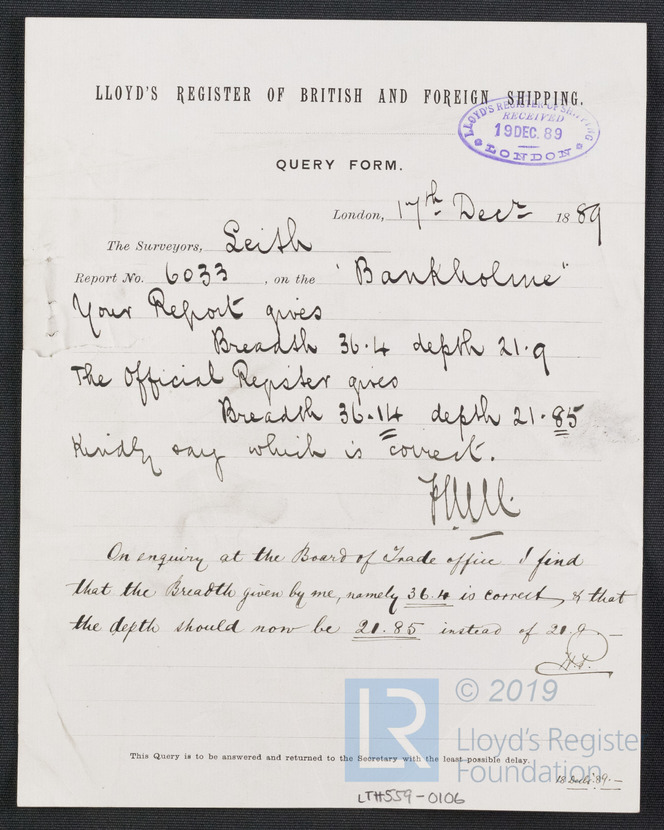 LLOYD'S REGISTER OF BRITISH AND FOREIGN SHIPPING.
LLOYD'S REGISTER OF SHIPPING
RECEIVED
19 DEC. 89
LONDON
QUERY FORM.
London, 17th Decr 1889
The Surveyors, Leith
Report No. 6033, on the "Bankholme"
Your Report gives
Breadth 36.4 depth 21.9
The Official Register gives
Breadth 36.14 depth 21.85
Kindly say which is correct.
On enquiry at the Board of Trade office I find
that the Breadth given by me, namely 36.4 is correct, & that
the depth should now be 21.85 instead of 21.9 –
© 2019
LR
Lloyd's Registe
Foundation
This Query is to be answered and returned to the Secretary with the least possible delay.
18 Decr. 89. –
LTH559-0106